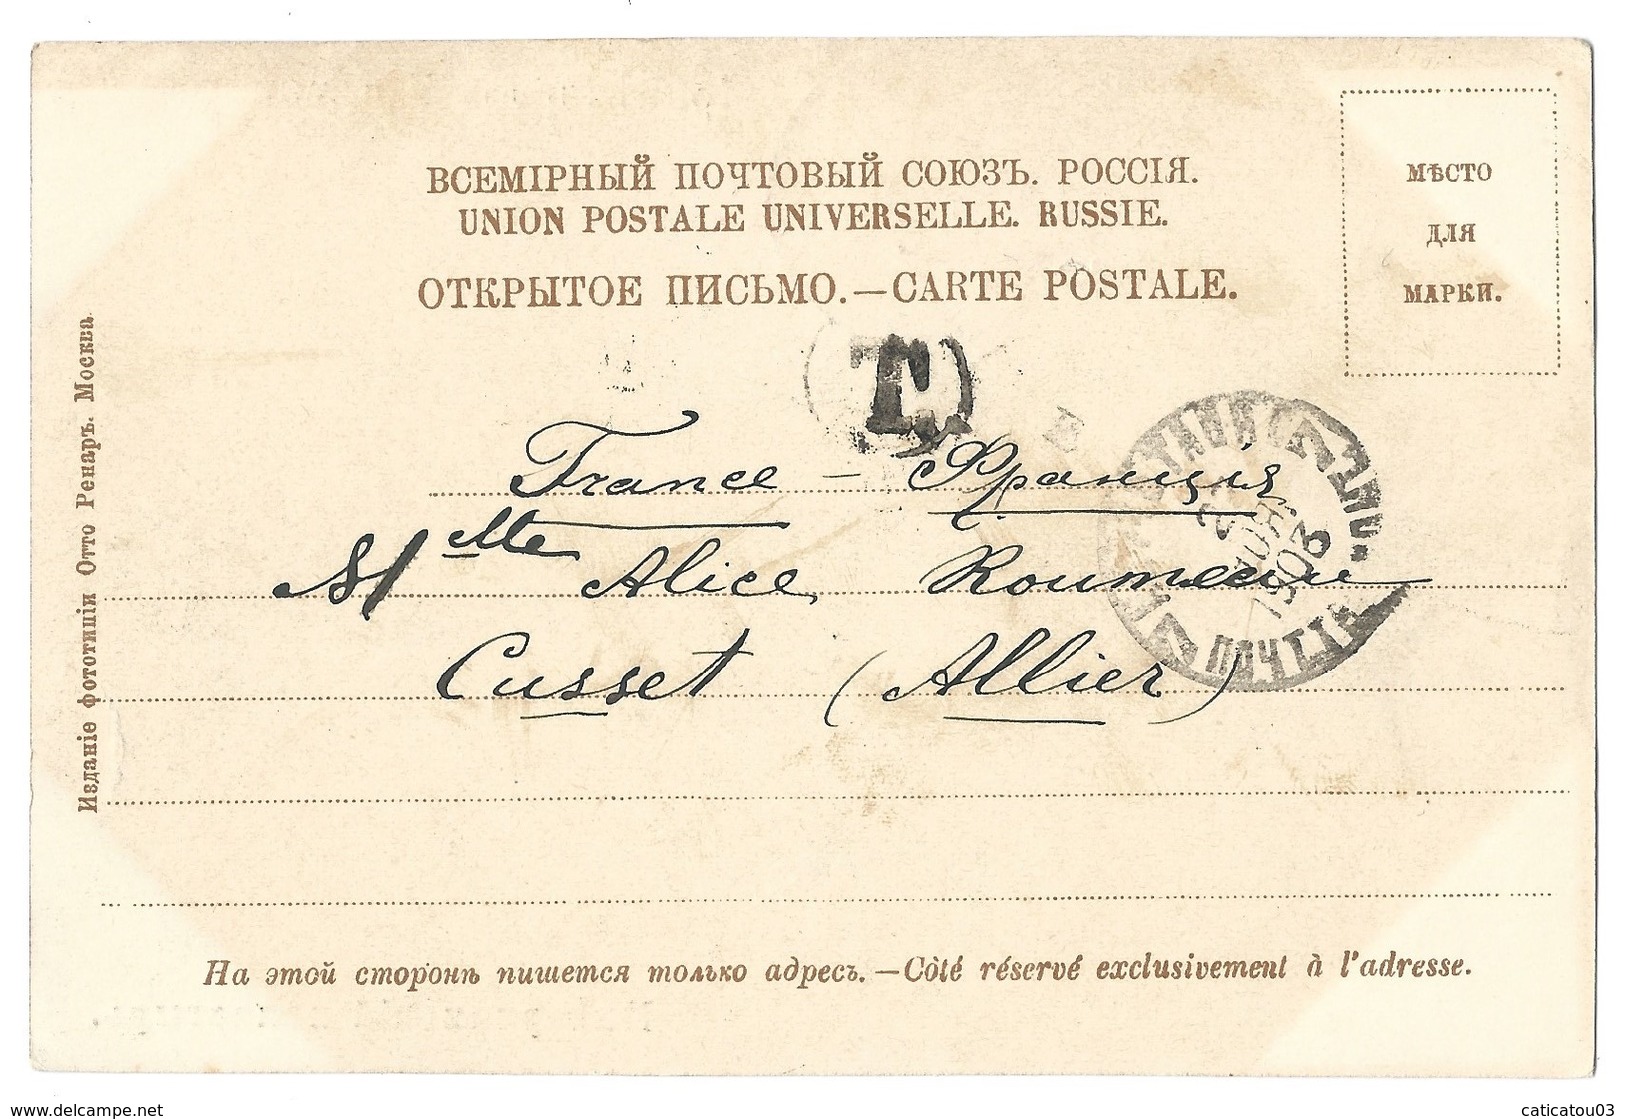 ВСЕМІРНЫЙ ПОЧТОВЫЙ СОЮЗЪ. РОССІЯ.
UNION POSTALE UNIVERSELLE. RUSSIE.
ОТКРЫТОЕ ПИСЬМО.—CARTE POSTALE.
МѢСТО
ДЛЯ
МАРКИ.
T.
France - Франція
Mlle Alice Roumeau
Cusset (Allier)
1903
ПОЧТ
Изданіе фототипіи Отто Ренаръ. Москва
На этой сторонѣ пишется только адресъ.—Côté réservé exclusivement à l'adresse.
www.delcampe.net
caticatou03